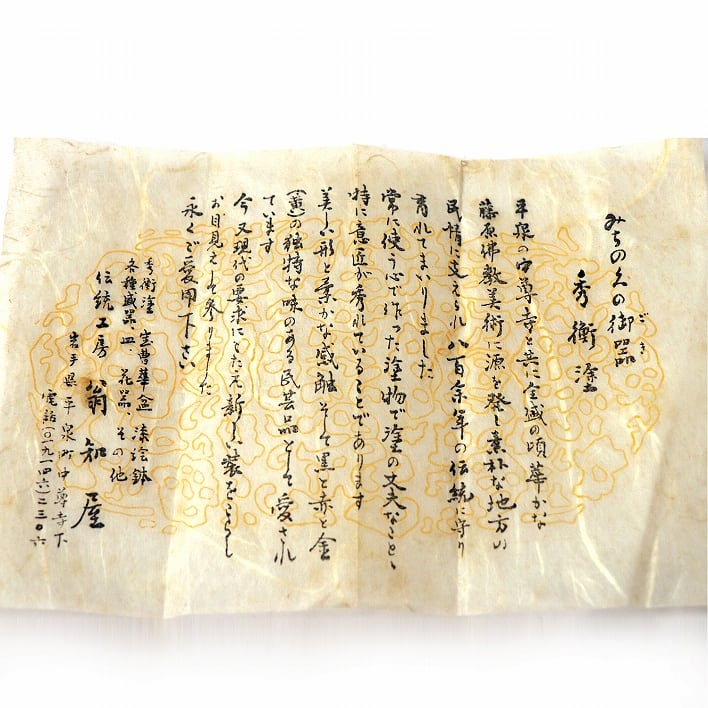 みちのくの御器
ごき
秀衡塗
平泉の中尊寺と共に全盛の頃華かな
藤原佛教美術に源を発し素朴な地方の
民情に支えられ八百余年の伝統に守り
育れてまいりました
常に使う心で作った塗物で塗の丈夫なことゝ
特に意匠が秀れていることであります
美しい形と柔かな感触そして黒と赤と金
(黄)の独特な味のある民芸品として愛され
ています
今又現代の要求にこたえ新しい装をこらし
お目見えして参りました
永くご愛用下さい
秀衡塗 宝曹華盆 漆絵鉢
各種盛器、皿、花器、その他
伝統工房 翁知屋
岩手県平泉町中尊寺下
電話(〇一九一四六)二三〇六